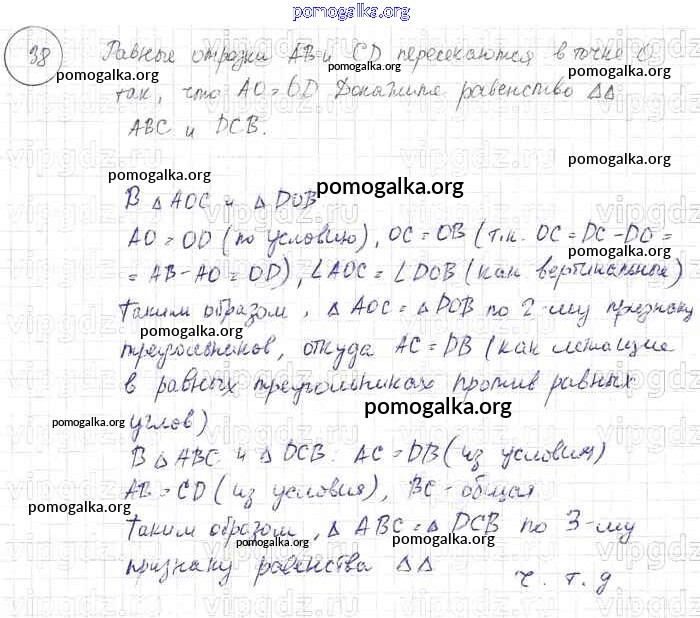 pomogalka.org
38 Равные отрезки AB и CD пересекаются в точке O
pomogalka.org pomogalka.org
так, что AO = OD Докажите равенство ΔΔ
ABC и DCB.
vipgdz.ru
pomogalka.org
pomogalka.org
В Δ AOC и Δ DOB
pomogalka.org
AO = OD (по условию), OC = OB (т.к. OC = DC - DO =
pomogalka.org
= AB - AO = OD), ∠AOC = ∠DOB (как вертикальные)
Таким образом, Δ AOC = Δ DOB по 2-му признаку
pomogalka.org
треугольников, откуда AC = DB (как лежащие
в равных треугольниках против равных
pomogalka.org
pomogalka.org
углов)
В Δ ABC и Δ DCB. AC = DB (из условия)
AB = CD (из условия), BC - общая
pomogalka.org
Таким образом, Δ ABC = Δ DCB по 3-му
pomogalka.org pomogalka.org
признаку равенства ΔΔ
ч. т. д